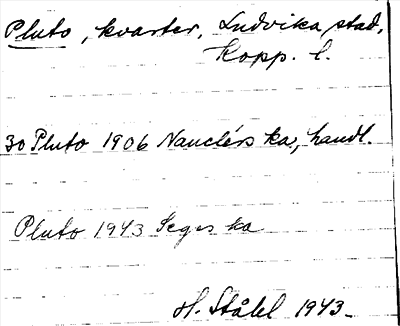 Pluto, kvarter, Ludvika stad,
Kopp. l.
30 Pluto 1906 Nauclérs ka, handl.
Pluto 1943 Seg:s ka
H. Ståhl 1943.